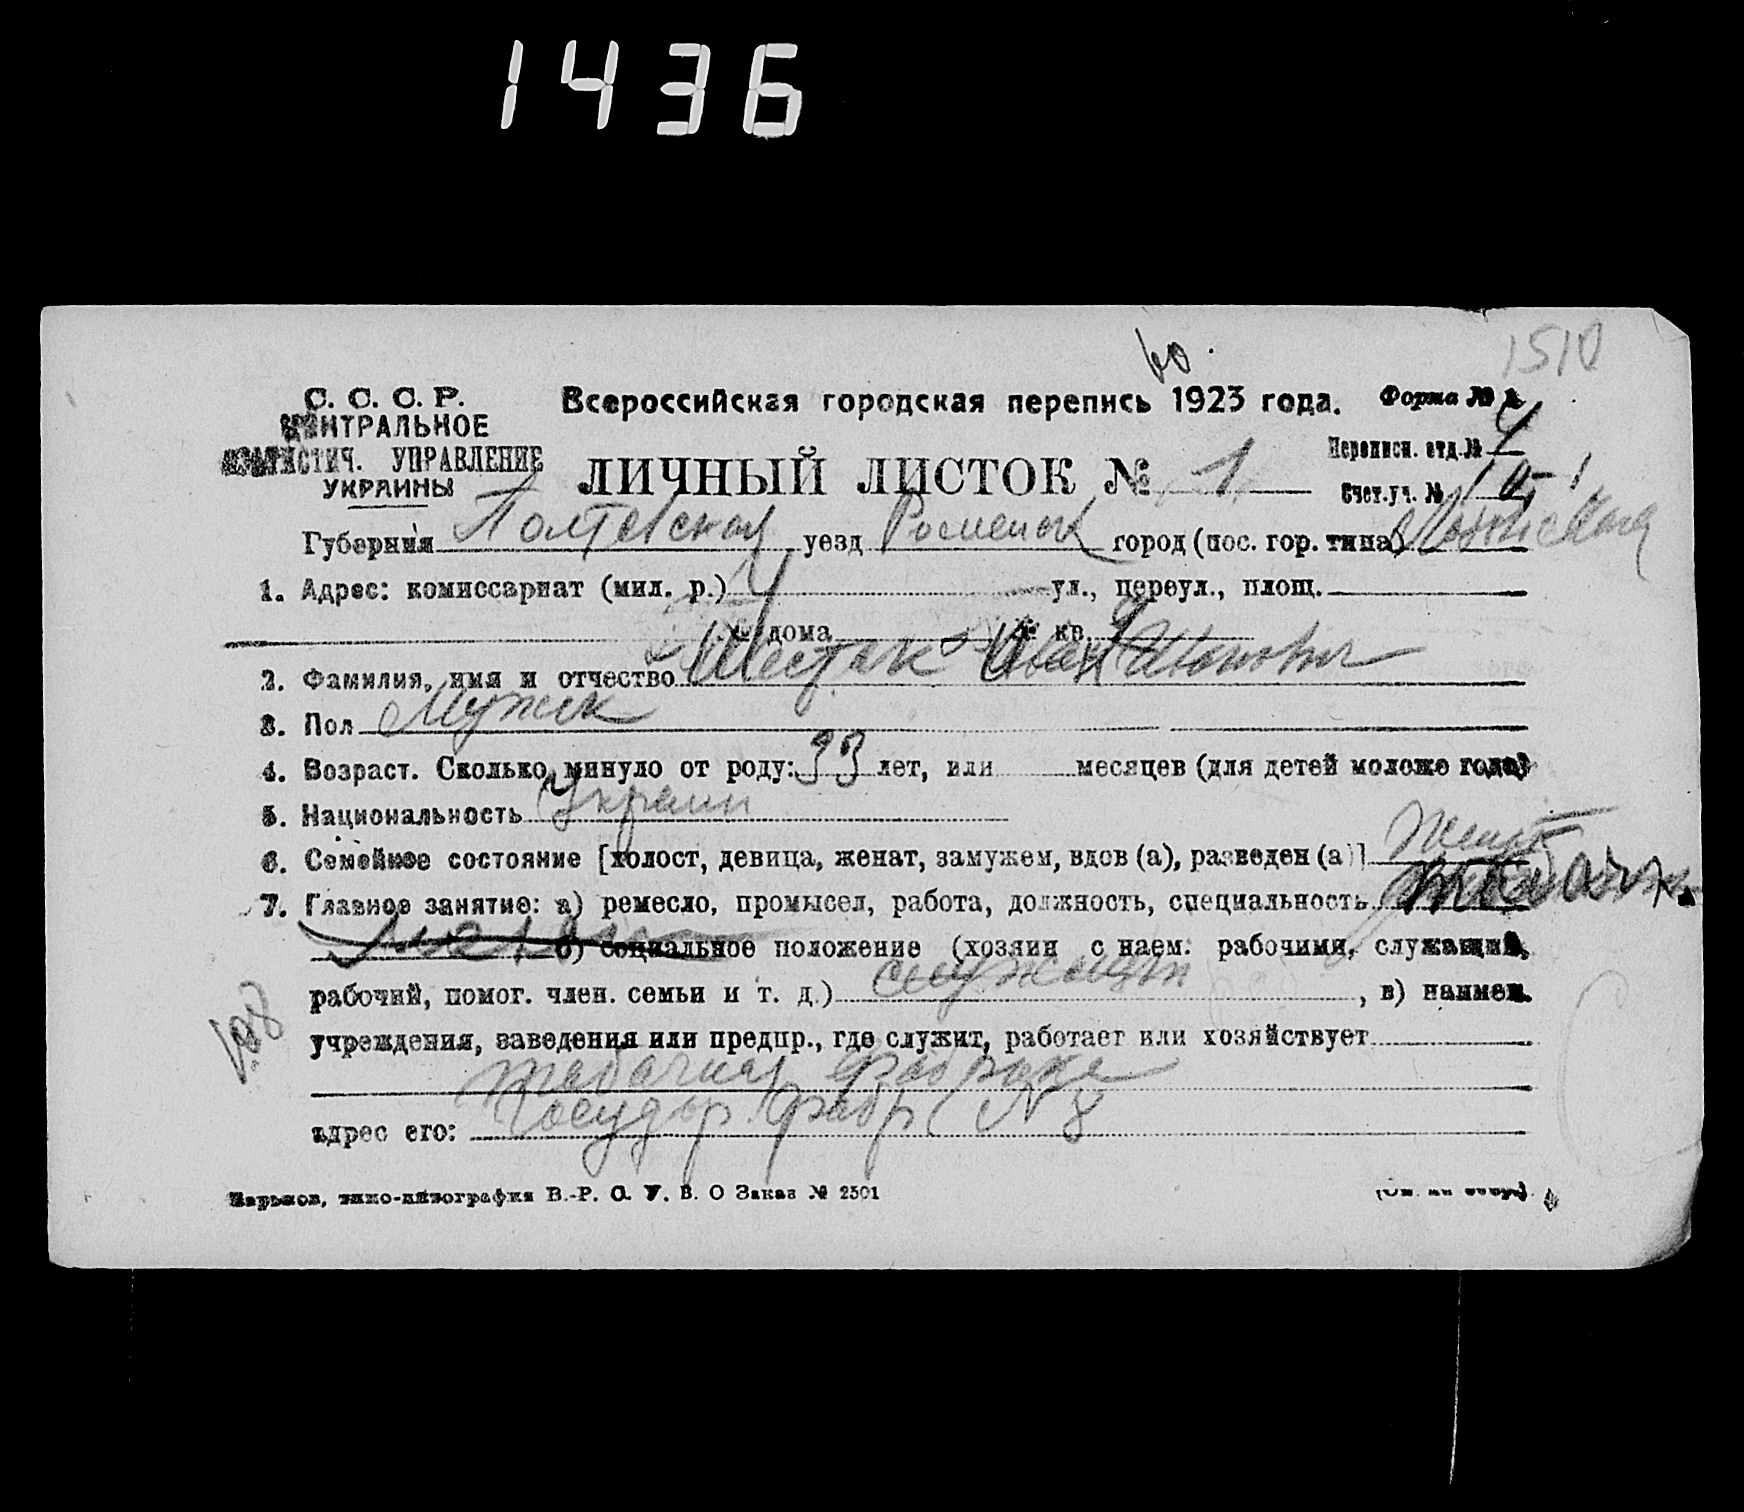 1436
1510
60.
С. С. С. Р.
ЦЕНТРАЛЬНОЕ
УПРАВЛЕНИЕ
УКРАИНЫ
Всероссийская городская перепись 1923 года.
Форма №
ЛИЧНЫЙ ЛИСТОК № 1
Переписн. отд. № 4
Счет. уч. № 10
Губерния Полтавская уезд Роменск город (пос. гор. типа)
1. Адрес: комиссариат (мил. р.) 4 ул., переул., площ.
№ дома № кв.
2. Фамилия, имя и отчество Шестак Иван Иванович
3. Пол Мужск
4. Возраст. Сколько минуло от роду: 33 лет, или месяцев (для детей моложе года)
5. Национальность Украин
6. Семейное состояние [холост, девица, женат, замужем, вдов (а), разведен (а)] Женат
7. Главное занятие: а) ремесло, промысел, работа, должность, специальность
б) социальное положение (хозяин с наем. рабочими, служащий,
рабочий, помог. член. семьи и т. д.) служащий, в) наимен.
учреждения, заведения или предпр., где служит, работает или хозяйствует
табачная фабрика
адрес его: Государ. фабр № 8
Харьков, типо-литография В.-Р. С. У. В. О Заказ № 2501